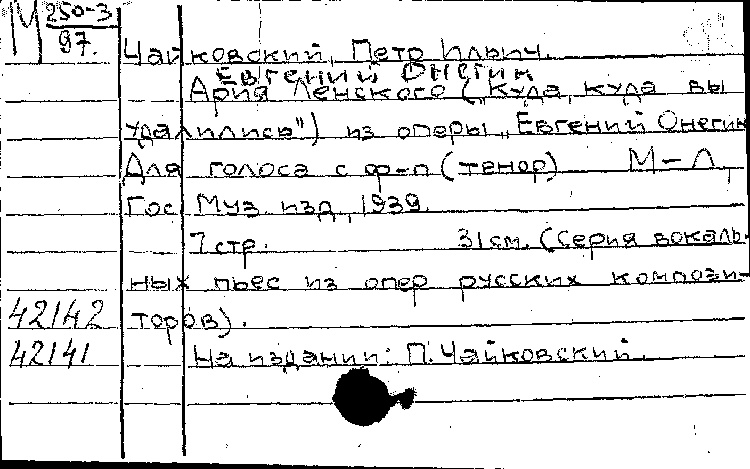 М 250-3
97.
Чайковский, Петр Ильич.
Евгений Онегин
Ария Ленского („Куда, куда вы
удалились") из оперы „Евгений Онегин
Для голоса с ф-п (тенор) М-Л,
Гос. Муз. изд., 1939.
7 стр. 31 см. (Серия вокаль-
ных пьес из опер русских компози-
42142 торов).
42141 На издании: П. Чайковский.